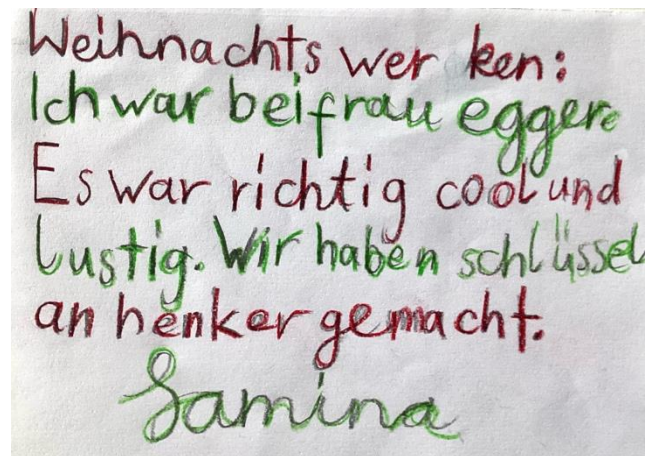 Weihnachts wer ken:
Ich war bei frau egger.
Es war richtig cool und
lustig. Wir haben schlüssel
an henker gemacht.
Samina